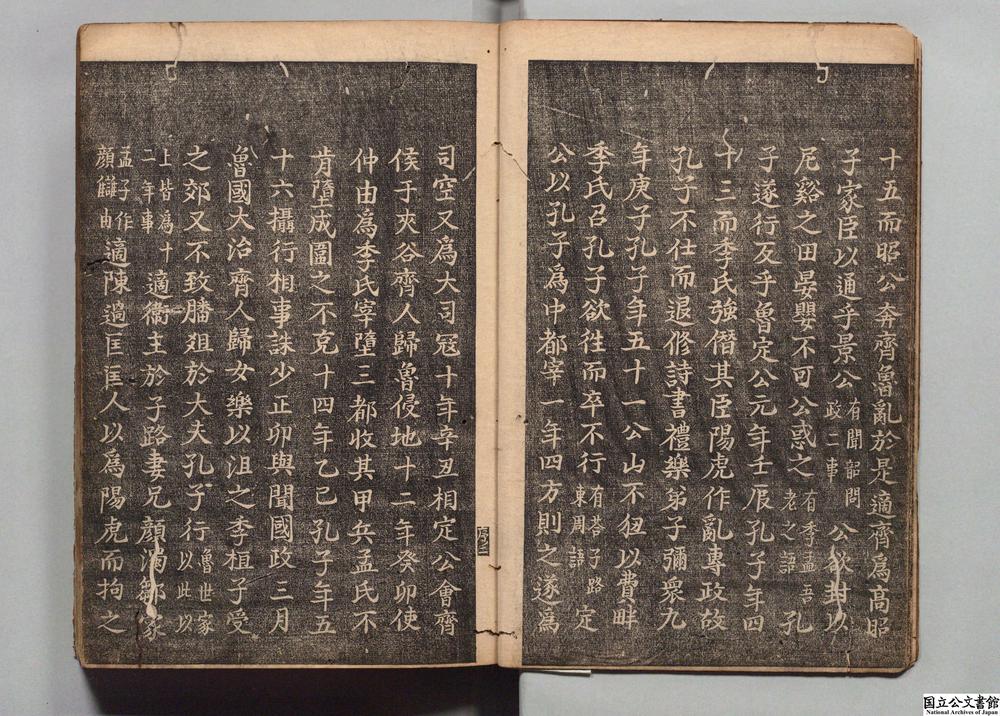 十五而昭公奔齊魯亂於是適齊爲高昭
子家臣以通乎景公有聞韶問政二事公欲封以
尼谿之田晏嬰不可公惑之有季孟吾老之語孔
子遂行反乎魯定公元年壬辰孔子年四
十三而季氏強僭其臣陽虎作亂專政故
孔子不仕而退修詩書禮樂弟子彌衆九
年庚子孔子年五十一公山不狃以費畔
季氏召孔子欲往而卒不行有荅子路東周語定
公以孔子爲中都宰一年四方則之遂爲
司空又爲大司寇十年辛丑相定公會齊
侯于夾谷齊人歸魯侵地十二年癸卯使
仲由爲季氏宰墮三都收其甲兵孟氏不
肯墮成圍之不克十四年乙巳孔子年五
十六攝行相事誅少正卯與聞國政三月
魯國大治齊人歸女樂以沮之季桓子受
之郊又不致膰俎於大夫孔子行魯世家以此以
上皆爲十二年事適衞主於子路妻兄顔濁鄒家
孟子作顔讎由適陳過匡匡人以爲陽虎而拘之
序二
国立公文書館
National Archives of Japan